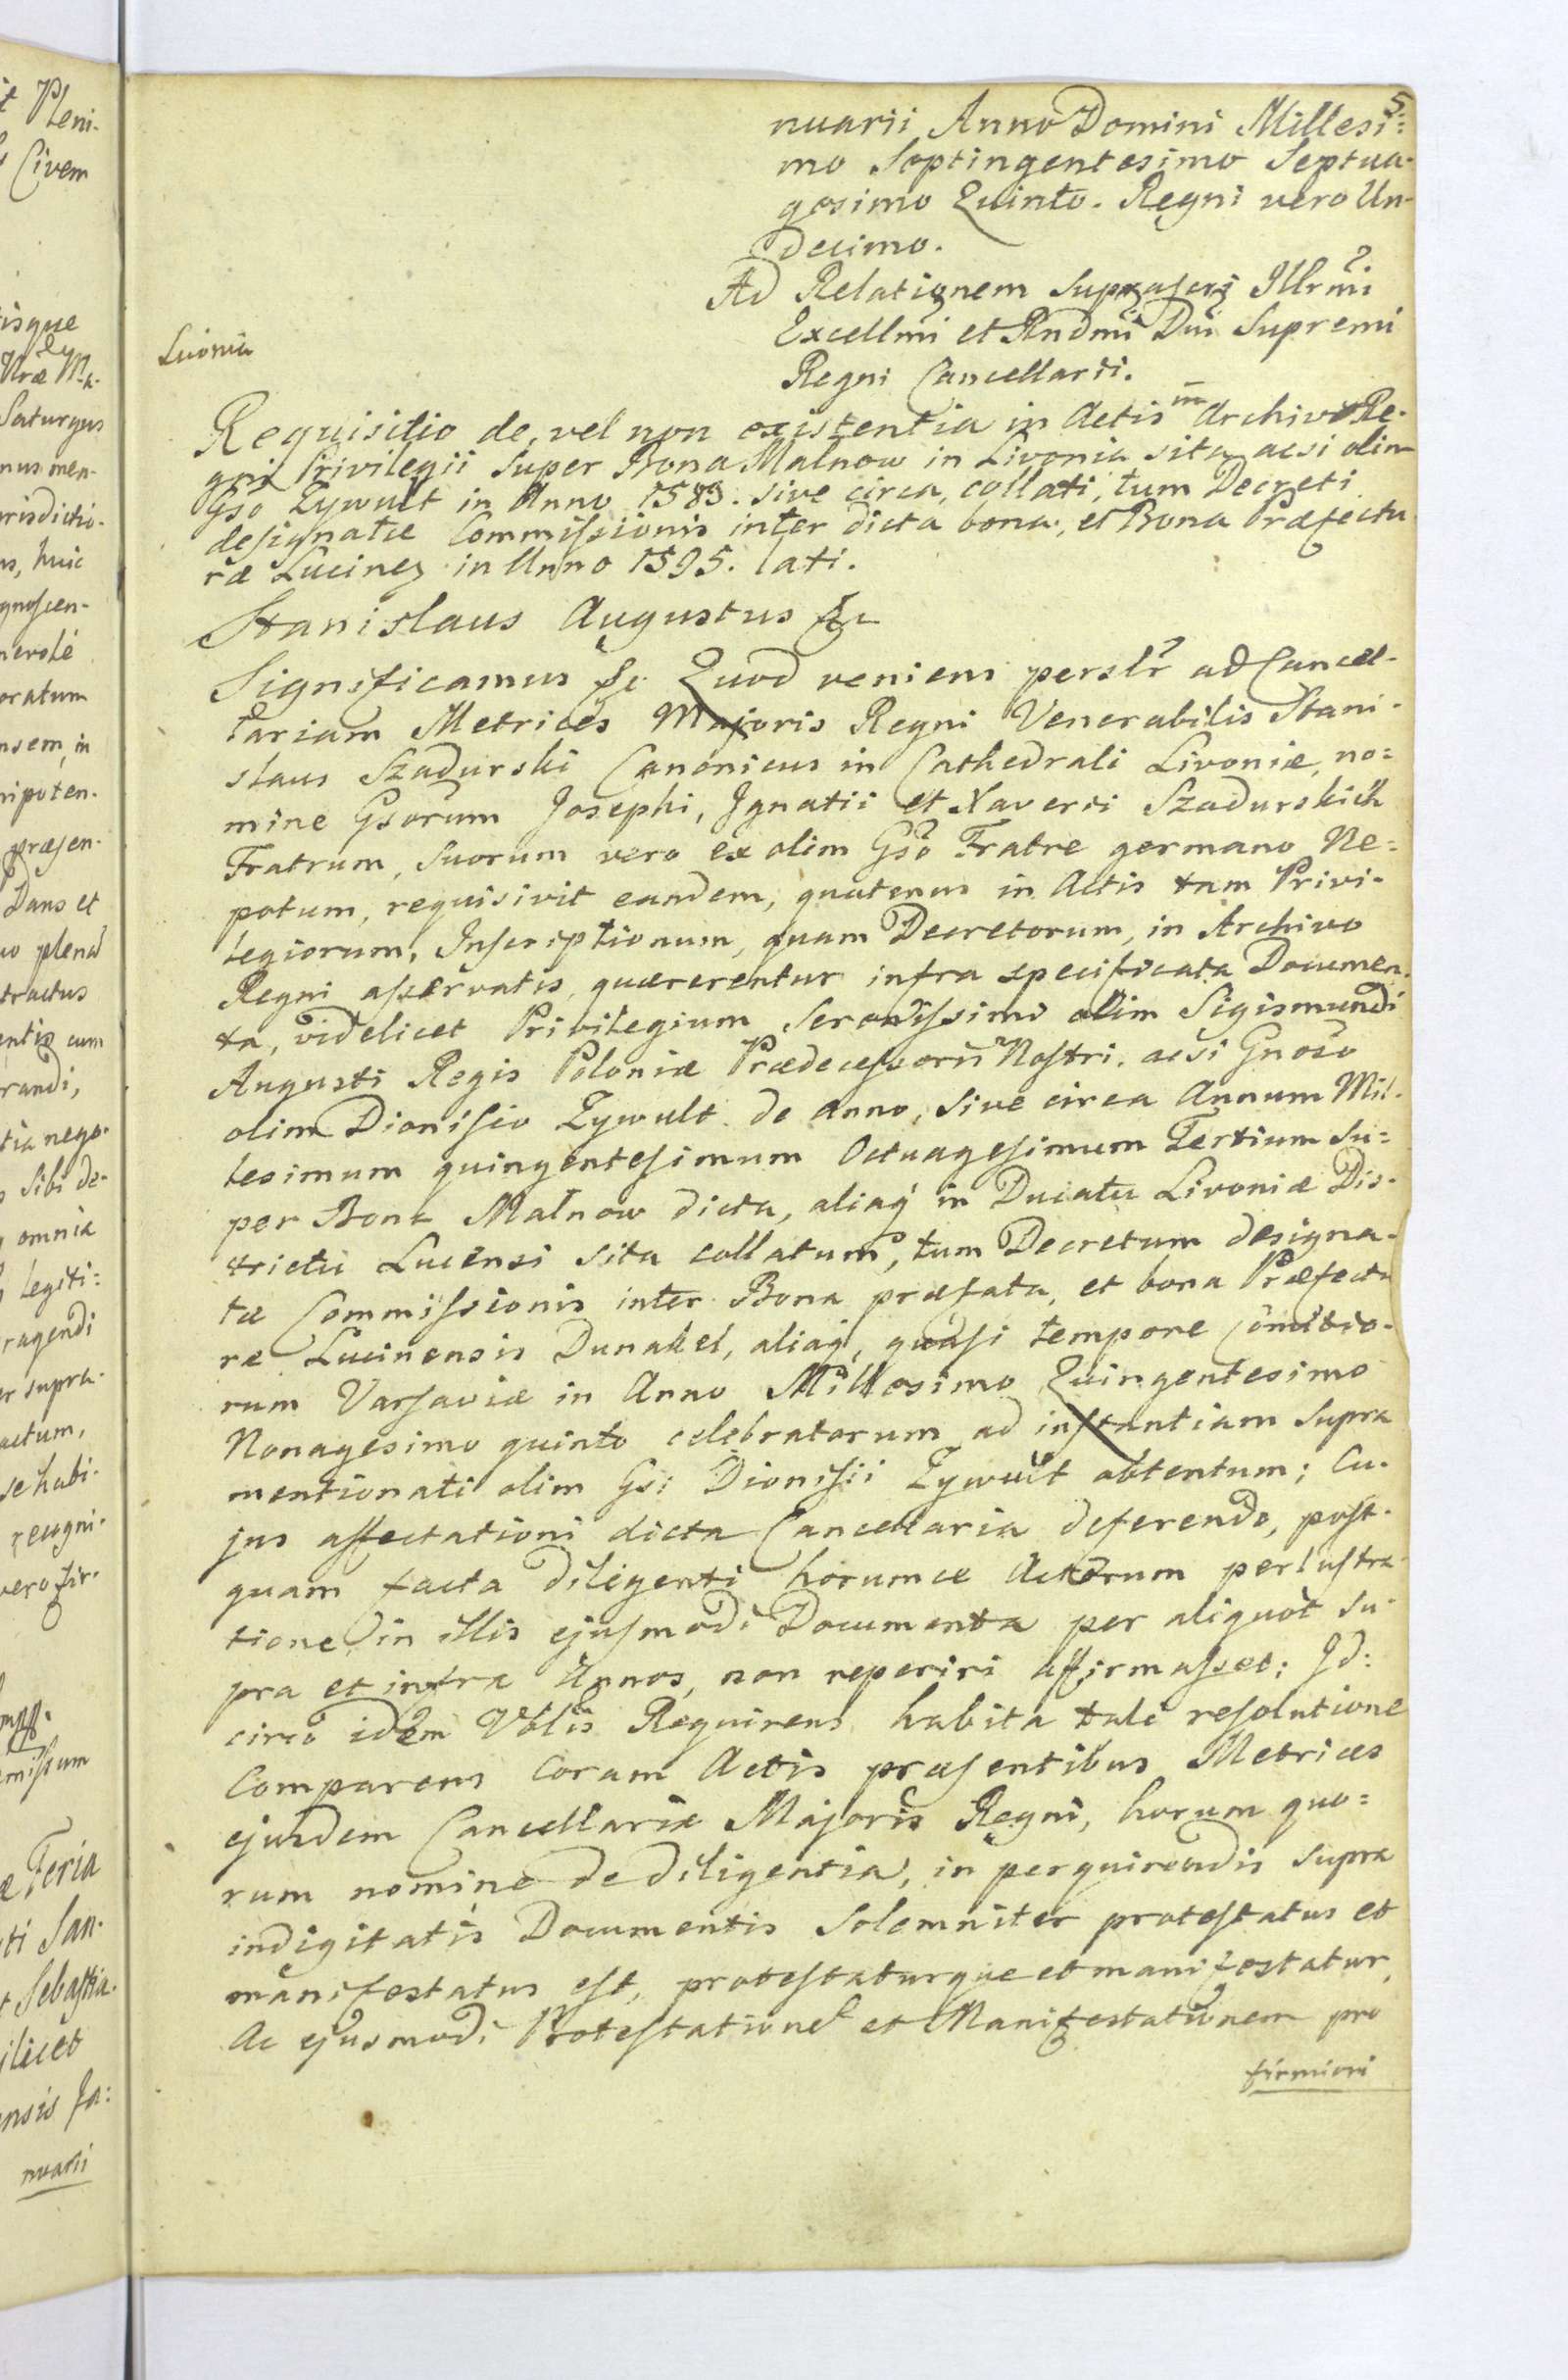 5
nuarii Anno Domini Millesi:
mo Septingentesimo Septua-
gesimo Quinto. Regni vero Un-
decimo.
Ad Relationem Suprascrꝭ Illrmi
Excellmi et Rndmi Dni Supremi
Regni Cancellarii.
Livonia
Requisitio de, vel non existentia in Actis in Archivo Re-
gni Privilegii Super Bona Malnow in Livonia sita acsi olim
Gso Zywult in Anno 1583. sive circa, collati, tum Decreti
designatæ Commissionis inter dicta bona, et Bona Præfectu
ræ Lucinen in Anno 1595. lati.
Stanislaus Augustus &c
Significamus &c Quod veniens perslr ad Cancel-
lariam Metrices Majoris Regni Venerabilis Stani-
slaus Szadurski Canonicus in Cathedrali Livoniæ, no=
mine Gsorum Josephi, Ignatii et Xaverii Szadurskich
Fratrum, Suorum vero ex olim Gso Fratre germano Ne=
potum, requisivit eandem, quatenus in Actis tam Privi-
legiorum, Inscriptionum, quam Decretorum, in Archivo
Regni asservatis, quærerentur infra specificata Documen-
ta, videlicet Privilegium Serenissimi olim Sigismundi
Augusti Regis Poloniæ Prædecessoris Nostri. acsi Gnoso
olim Dionisio Zywult de Anno, sive circa Annum Mil-
lesimum quingentesimum Octuagesimum Tertium Su=
per Bona Malnow dicta, aliaq in Ducatu Livoniæ Dis-
trictu Lucensi sita collatum, tum Decretum designa-
tæ Commissionis inter Bona præfata, et bona Præfectu
ræ Lucinensis Dunakel, aliaq, quasi tempore Comitio-
rum Varsaviæ in Anno Millesimo Quingentesimo
Nonagesimo quinto celebratorum ad instantiam Supra
mentionati olim Gs: Dionisii Zywult obtentum; Cu-
jus affectationi dicta Cancellaria deferendo, post-
quam facta diligenti horumce Actorum perlustra-
tione, in illis ejusmodi Documenta per aliquot su-
pra et infra Annos, non reperiri affirmasset; Id:
circo idem Vblis Requirens habita tali resolutione
Comparens Coram Actis præsentibus Metrices
ejusdem Cancellariæ Majoris Regni, horum quo=
rum nomine de diligentia, in perquirendis supra
indigitatis Documentis Solemniter protestatus et
manifestatus est, protestaturque et manifestatur,
Ac ejusmodi Protestationem et Manifestationem pro
firmiori